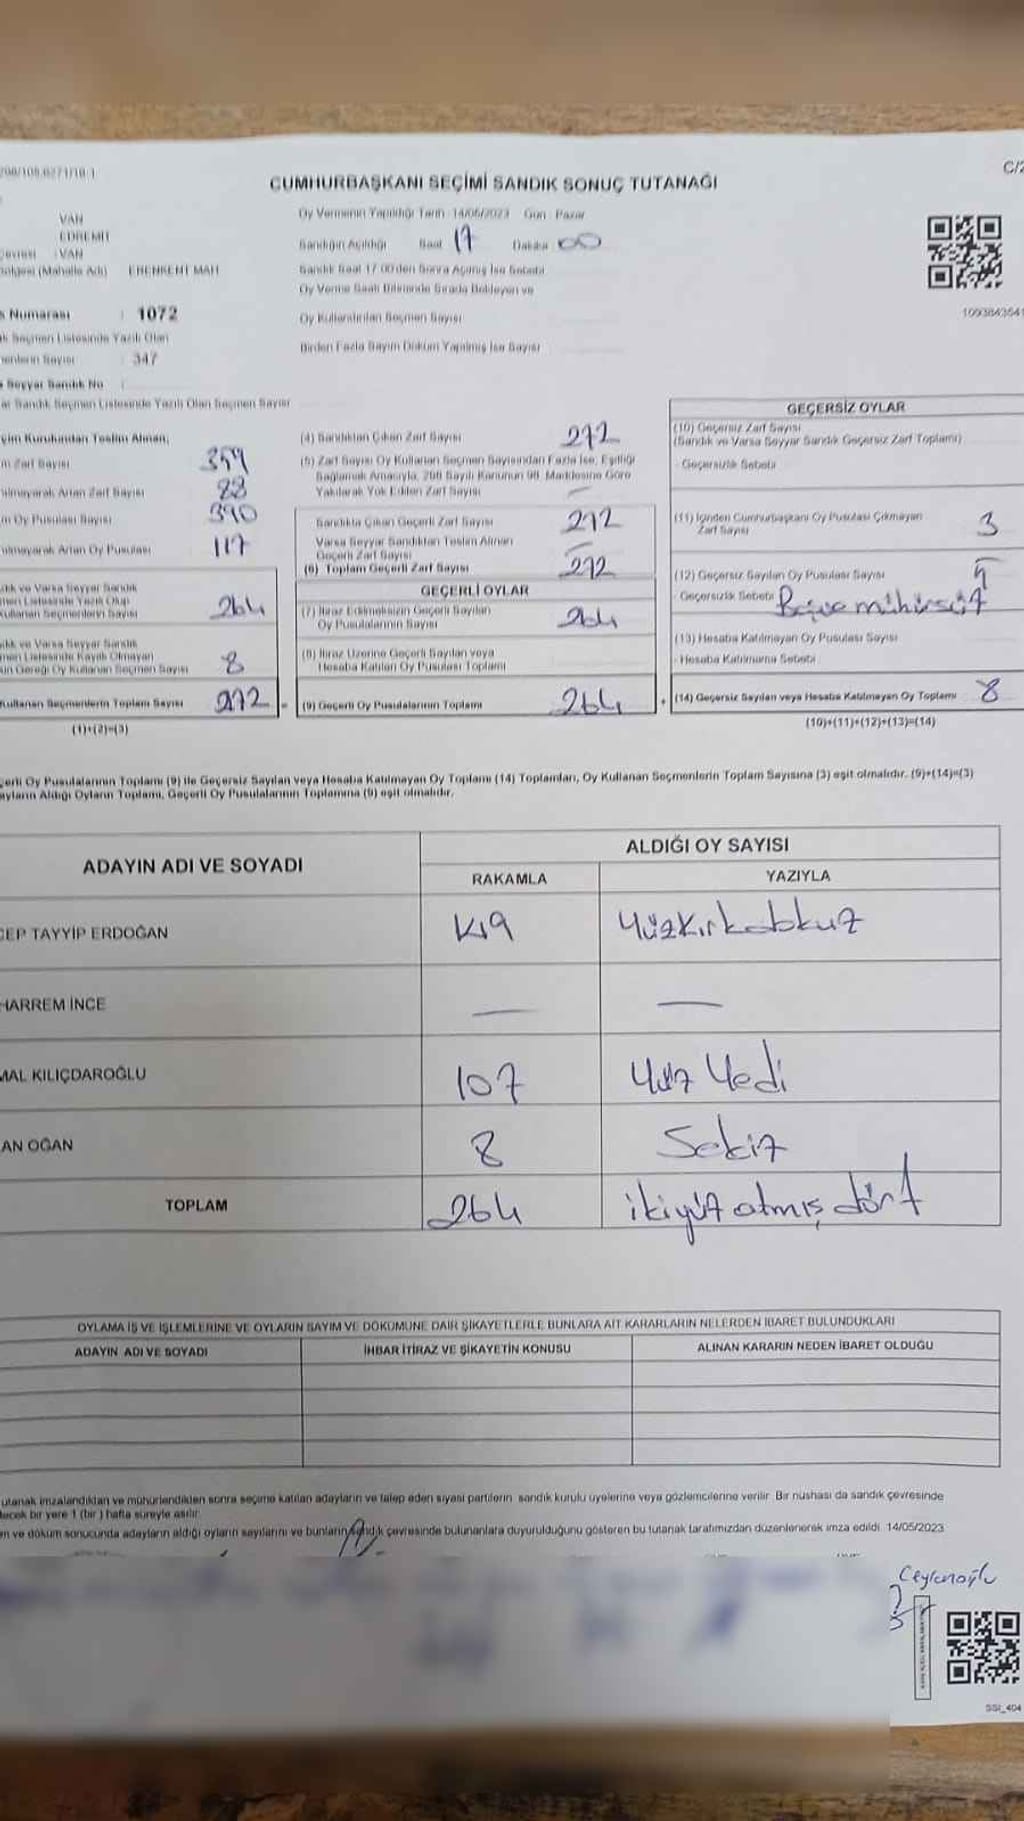 CUMHURBAŞKANI SEÇİMİ SANDIK SONUÇ TUTANAĞI
VAN
EDREMİT
VAN
(Mahalle Adı) ERENKENT MAH
Numarası : 1072
347
Seyyar Sandık No
Oy Vermenin Yapıldığı Tarih 14/05/2023 Gün : Pazar
Sandığın Açıldığı Saat 17 Dakika 00
Sandık Saat 17.00'den Sonra Açılmış İse Sebebi
Oy Verme Saati Bitiminde Sırada Bekleyen ve
Oy Kullandırılan Seçmen Sayısı
Birden Fazla Sayım Döküm Yapılmış İse Sayısı
Sandık Seçmen Listesinde Yazılı Olan Seçmen Sayısı
Kurulundan Teslim Alınan;
Zarf Sayısı 359
Artan Zarf Sayısı 88
Oy Pusulası Sayısı 390
Artan Oy Pusulası 117
264
8
Kullanan Seçmenlerin Toplam Sayısı 272
(1)+(2)=(3)
(4) Sandıktan Çıkan Zarf Sayısı 272
(5) Zarf Sayısı Oy Kullanan Seçmen Sayısından Fazla İse, Eşitliği
Sağlamak Amacıyla, 298 Sayılı Kanunun 98. Maddesine Göre
Yakılarak Yok Edilen Zarf Sayısı —
Sandıkta Çıkan Geçerli Zarf Sayısı 272
Varsa Seyyar Sandıktan Teslim Alınan
Geçerli Zarf Sayısı —
(6) Toplam Geçerli Zarf Sayısı 272
GEÇERLİ OYLAR
(7) İtiraz Edilmeksizin Geçerli Sayılan
Oy Pusulalarının Sayısı 264
(8) İtiraz Üzerine Geçerli Sayılan veya
Hesaba Katılan Oy Pusulası Toplamı
(9) Geçerli Oy Pusulalarının Toplamı 264
GEÇERSİZ OYLAR
(10) Geçersiz Zarf Sayısı
(Sandık ve Varsa Seyyar Sandık Geçersiz Zarf Toplamı)
- Geçersizlik Sebebi
(11) İçinden Cumhurbaşkanı Oy Pusulası Çıkmayan
Zarf Sayısı 3
(12) Geçersiz Sayılan Oy Pusulası Sayısı 5
- Geçersizlik Sebebi
(13) Hesaba Katılmayan Oy Pusulası Sayısı
- Hesaba Katılmama Sebebi
(14) Geçersiz Sayılan veya Hesaba Katılmayan Oy Toplamı 8
(10)+(11)+(12)+(13)=(14)
Oy Pusulalarının Toplamı (9) ile Geçersiz Sayılan veya Hesaba Katılmayan Oy Toplamı (14) Toplamları, Oy Kullanan Seçmenlerin Toplam Sayısına (3) eşit olmalıdır. (9)+(14)=(3)
Aldığı Oyların Toplamı, Geçerli Oy Pusulalarının Toplamına (9) eşit olmalıdır.
ADAYIN ADI VE SOYADI ALDIĞI OY SAYISI
RAKAMLA YAZIYLA
CEP TAYYİP ERDOĞAN Yüzkırkdokuz
HARREM İNCE — —
MAL KILIÇDAROĞLU 107 Yüz Yedi
AN OĞAN 8 Sekiz
TOPLAM 264 ikiyüz atmış dört
OYLAMA İŞ VE İŞLEMLERİNE VE OYLARIN SAYIM VE DÖKÜMÜNE DAİR ŞİKAYETLERLE BUNLARA AİT KARARLARIN NELERDEN İBARET BULUNDUKLARI
ADAYIN ADI VE SOYADI İHBAR İTİRAZ VE ŞİKAYETİN KONUSU ALINAN KARARIN NEDEN İBARET OLDUĞU
utanak imzalandıktan ve mühürlendikten sonra seçime katılan adayların ve talep eden siyasi partilerin sandık kurulu üyelerine veya gözlemcilerine verilir. Bir nüshası da sandık çevresinde
bir yere 1 (bir) hafta süreyle asılır.
ve döküm sonucunda adayların aldığı oyların sayılarını ve bunların sandık çevresinde bulunanlara duyurulduğunu gösteren bu tutanak tarafımızdan düzenlenerek imza edildi. 14/05/2023
Ceylanoğlu